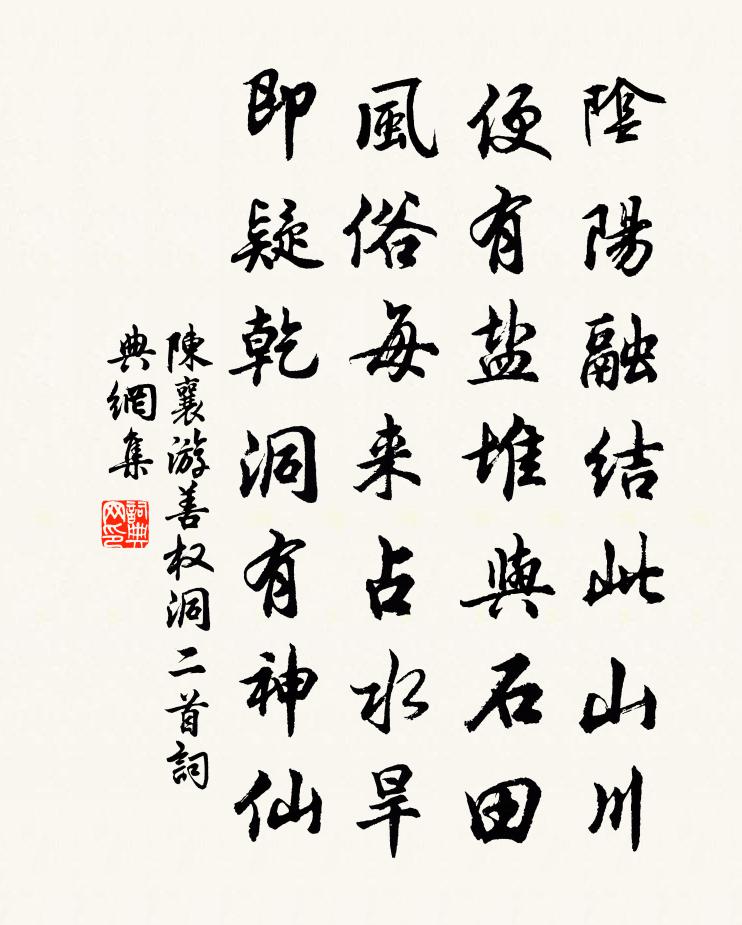 陰陽融結此山川
便有盐堆與石田
風俗每来占水旱
即疑乾洞有神仙
陳襄游善权洞二首詞
典網集
詞典網印